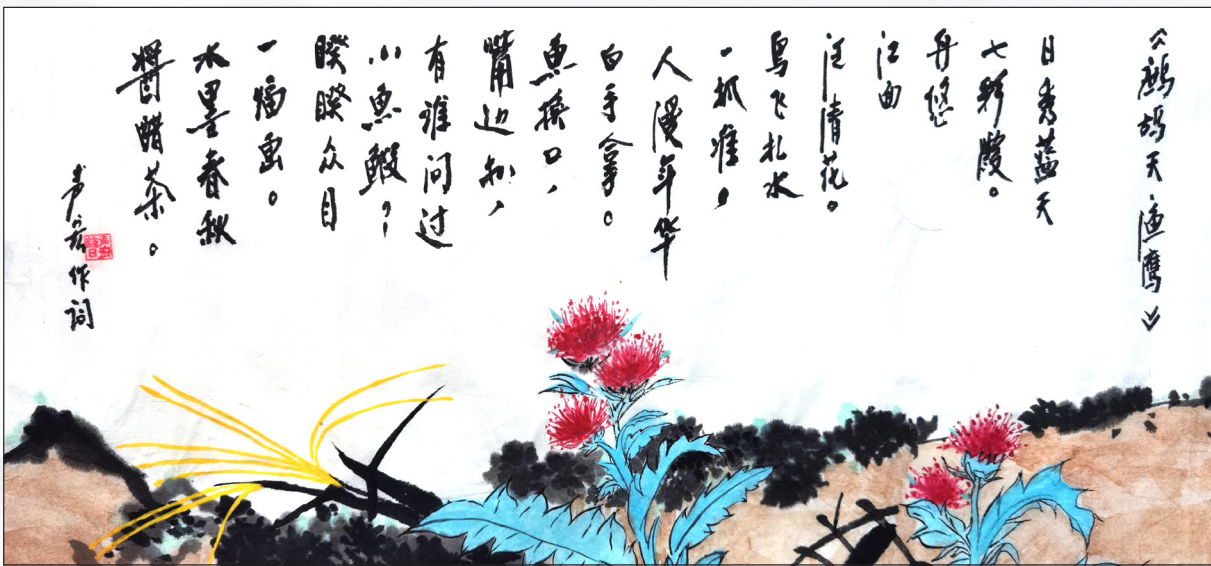 《鹧鸪天·渔鹰》
日秀蓝天
七彩霞。
舟悠
江面
汪清花。
鸟飞扎水
一抓准，
人漫年华
白手拿。
鱼换口，
嘴边扣，
有谁问过
小鱼虾？
睽睽众目
一幅画。
水墨春秋
酱醋茶。
作词